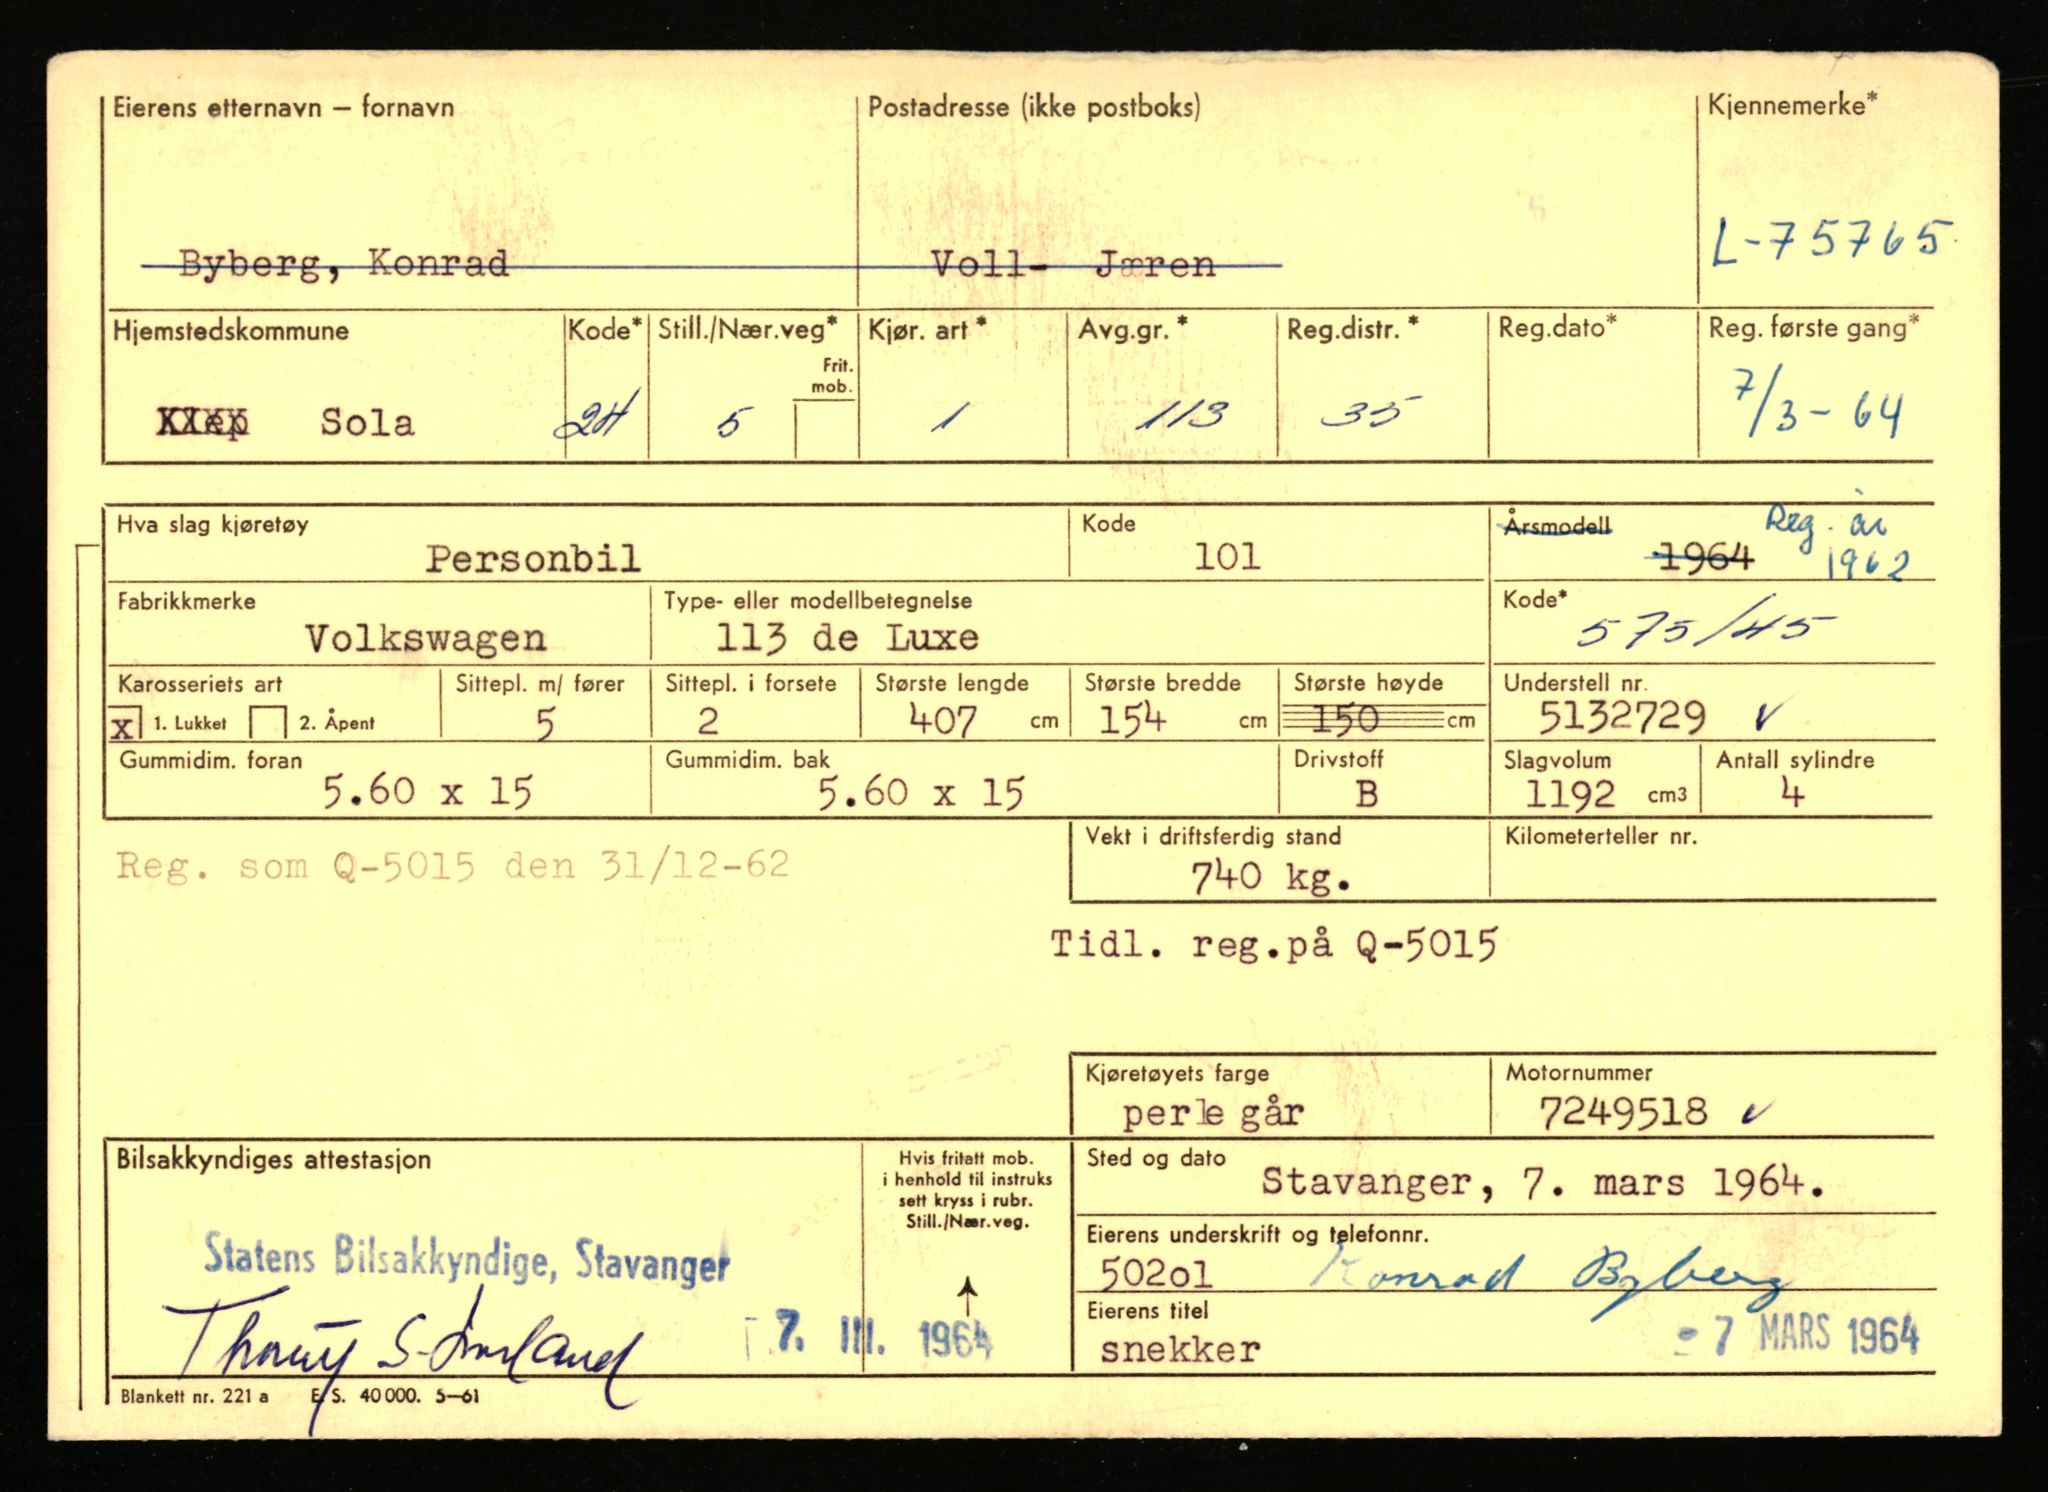 Eierens etternavn – fornavn Postadresse (ikke postboks) Kjennemerke*
L-75765
Byberg, Konrad Voll- Jæren
Hjemstedskommune Kode* Still./Nær.veg* Kjør. art* Avg.gr.* Reg.distr.* Reg.dato* Reg. første gang*
Frit. mob.
Klepp Sola 24 5 1 113 35 7/3-64
Hva slag kjøretøy Kode Årsmodell Reg. år
Personbil 101 1964 1962
Fabrikkmerke Type- eller modellbetegnelse Kode*
Volkswagen 113 de Luxe 575/45
Karosseriets art Sittepl. m/ fører Sittepl. i forsete Største lengde Største bredde Største høyde Understell nr.
x 1. Lukket 2. Åpent 5 2 407 cm 154 cm 150 cm 5132729 ✓
Gummidim. foran Gummidim. bak Drivstoff Slagvolum Antall sylindre
5.60 x 15 5.60 x 15 B 1192 cm3 4
Vekt i driftsferdig stand Kilometerteller nr.
Reg. som Q-5015 den 31/12-62 740 kg.
Tidl. reg.på Q-5015
Kjøretøyets farge Motornummer
perle går 7249518 ✓
Bilsakkyndiges attestasjon
Hvis fritatt mob.
i henhold til instruks
sett kryss i rubr.
Still./Nær.veg.
Sted og dato
Stavanger, 7. mars 1964.
Eierens underskrift og telefonnr.
Statens Bilsakkyndige, Stavanger
502ol Konrad Byberg
Eierens titel
7. III. 1964
snekker -7 MARS 1964
Blankett nr. 221 a E. S. 40 000. 5–61